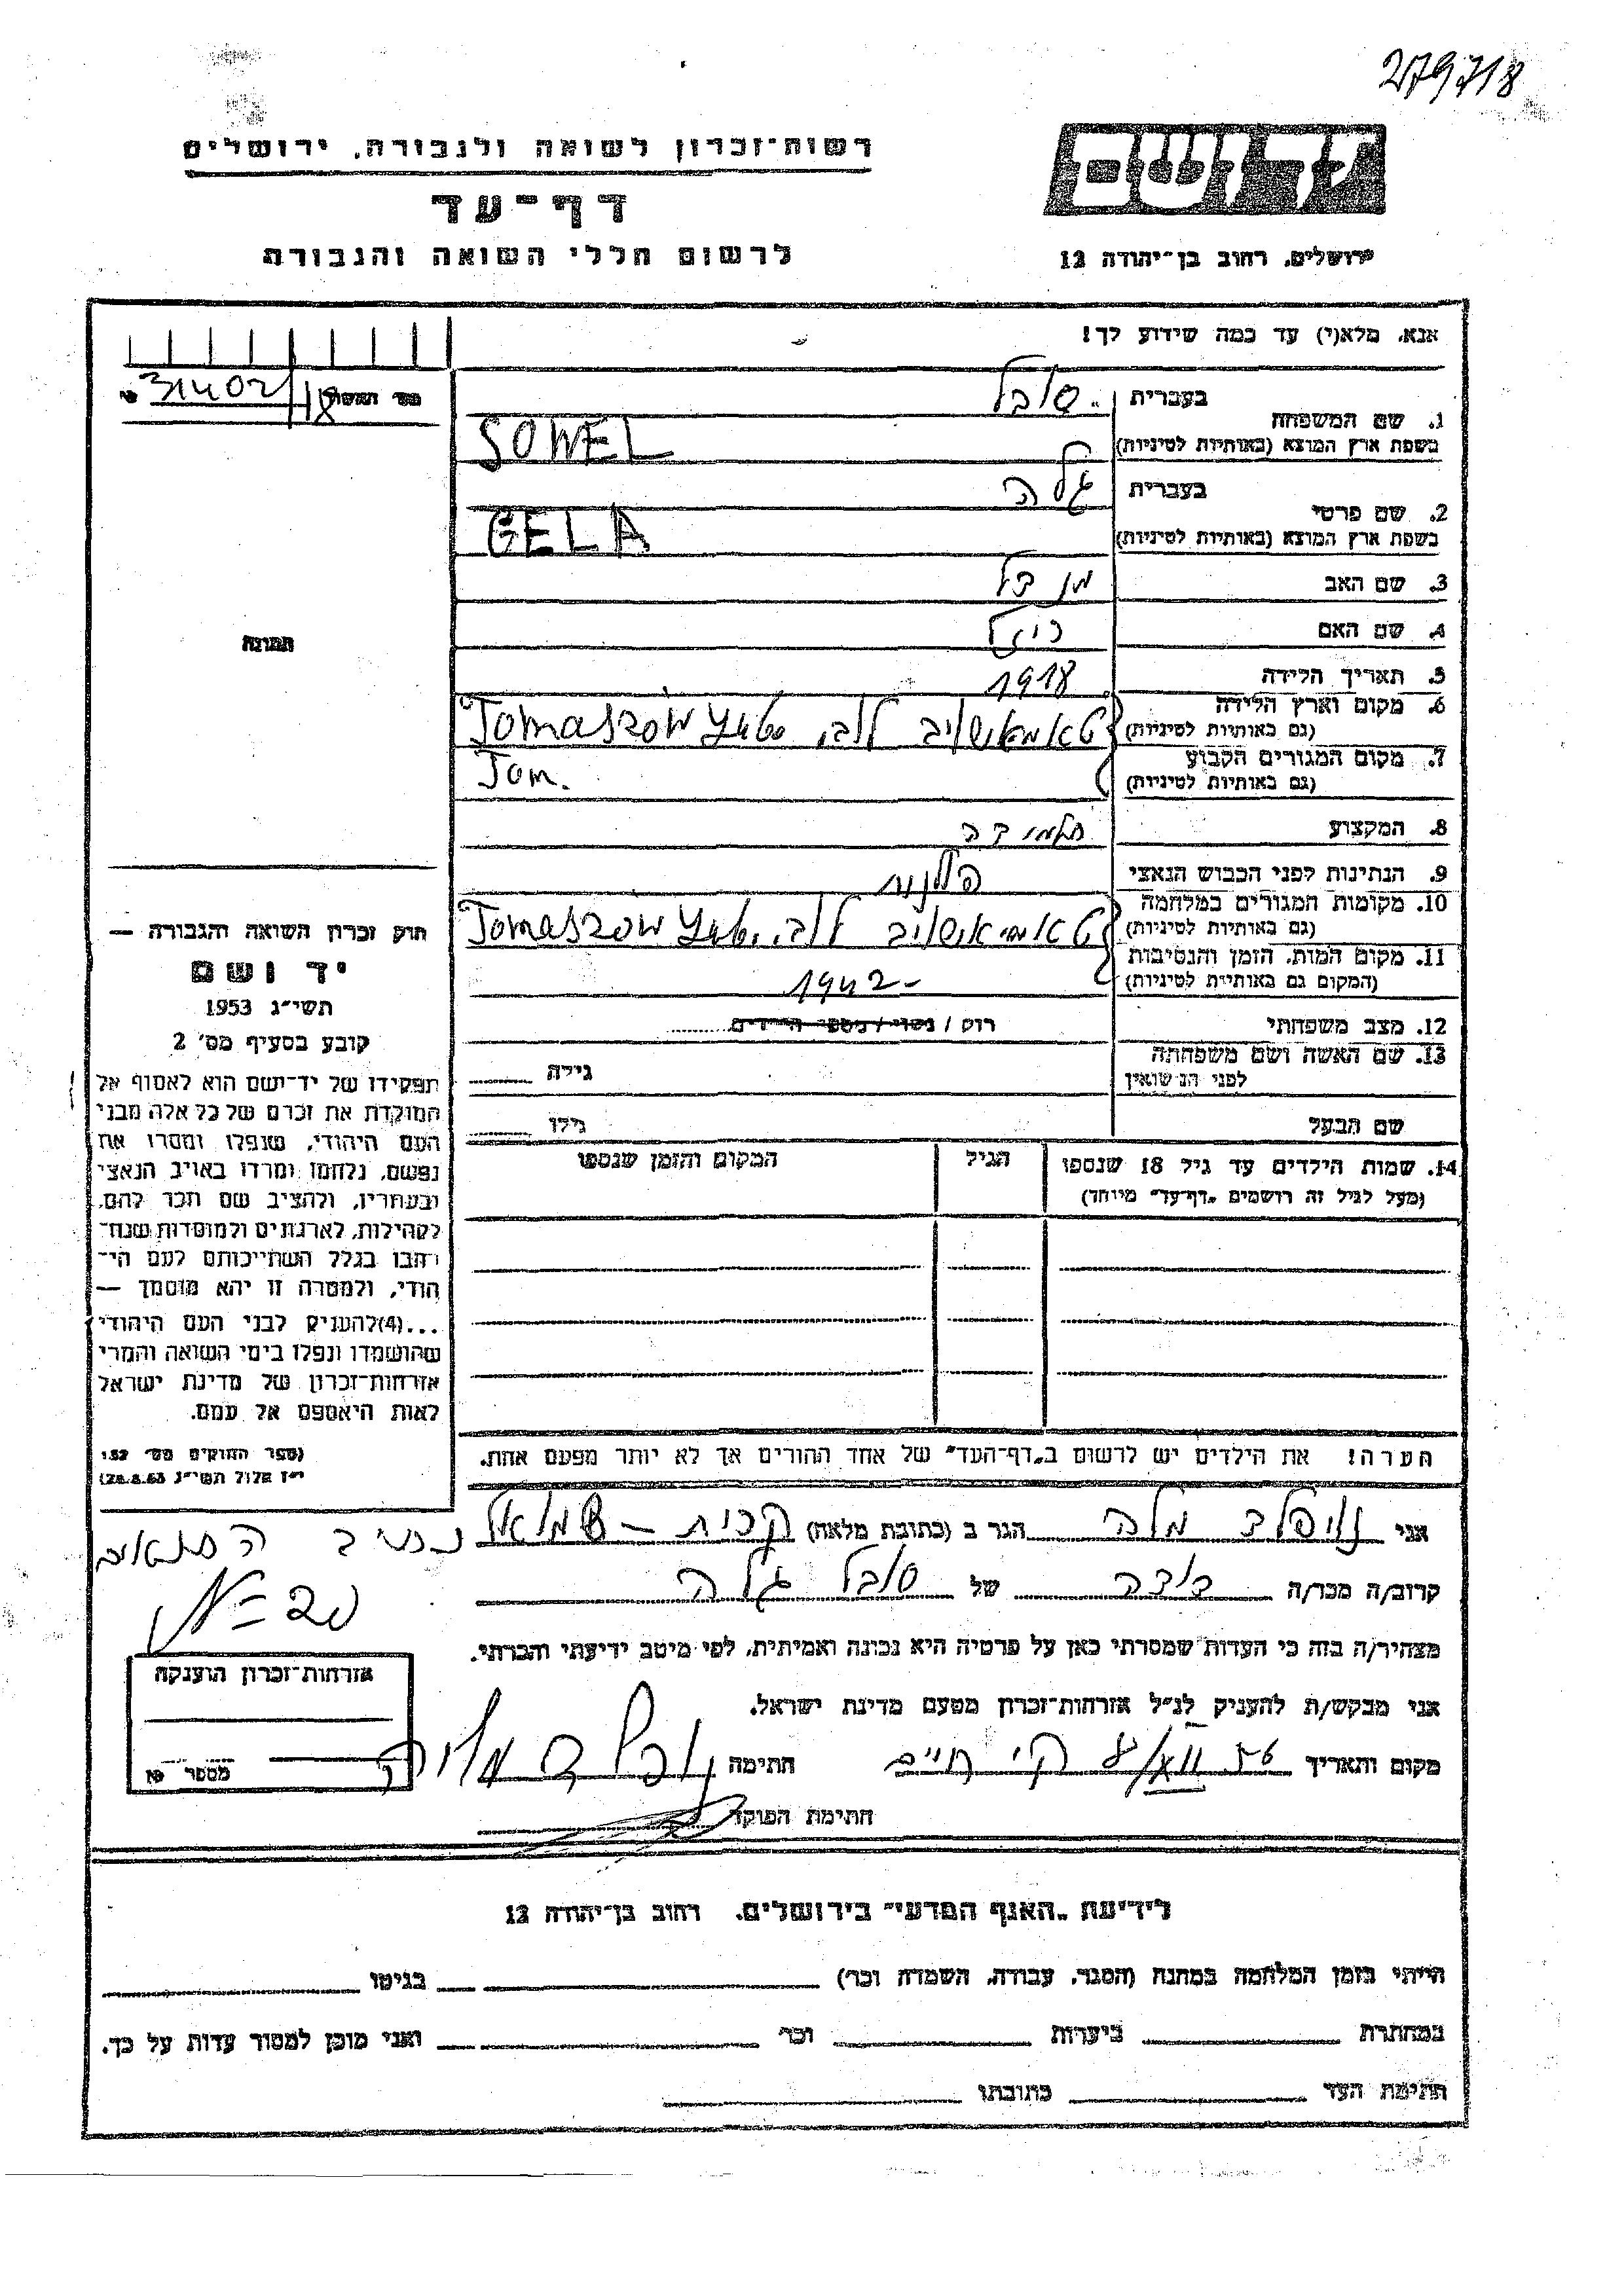 279718
רשות־זכרון לשואה ולגבורה, ירושלים
דף־עד
לרשום חללי השואה והגבורה
ירושלים, רחוב בן־יהודה 12
אנא, מלא(י) עד כמה שידוע לך!
31402/18
בעברית סובל
1. שם המשפחה
בשפת ארץ המוצא (באותיות לטיניות) SOWEL
בעברית גלה
2. שם פרטי
בשפת ארץ המוצא (באותיות לטיניות) GELA
3. שם האב מנדל
4. שם האם
5. תאריך הלידה 1918
6. מקום וארץ הלידה
(גם באותיות לטיניות) Tomaszow
7. מקום המגורים הקבוע
(גם באותיות לטיניות) Tom.
8. המקצוע תלמידה
9. הנתינות לפני הכבוש הנאצי פולנית
10. מקומות המגורים במלחמה
(גם באותיות לטיניות) Tomaszow
11. מקום המות, הזמן והנסיבות
(המקום גם באותיות לטיניות) 1942
12. מצב משפחתי רוק / נשוי / מספר הילדים
13. שם האשה ושם משפחתה
לפני הנשואין גילה
שם הבעל גילו
14. שמות הילדים עד גיל 18 שנספו הגיל המקום והזמן שנספו
(מעל לגיל זה רושמים „דף־עד״ מיוחד)
תמונה
חוק זכרון השואה והגבורה —
יד ושם
תשי״ג 1953
קובע בסעיף מס׳ 2
תפקידו של יד־ושם הוא לאסוף אל
המולדת את זכרם של כל אלה מבני
העם היהודי, שנפלו ומסרו את
נפשם, נלחמו ומרדו באויב הנאצי
ובעוזריו, ולהציב שם וזכר להם,
לקהילות, לארגונים ולמוסדות שנח־
רבו בגלל השתייכותם לעם הי־
הודי, ולמטרה זו יהא מוסמך —
...(4)להעניק לבני העם היהודי
שהושמדו ונפלו בימי השואה והמרי
אזרחות־זכרון של מדינת ישראל
לאות היאספם אל עמם.
(ספר החוקים מס׳ 132
י״ז אלול תשי״ג 28.8.53)
הערה! את הילדים יש לרשום ב„דף־העד״ של אחד ההורים אך לא יותר מפעם אחת.
אני מלה הגר ב (כתובת מלאה) קרית – שמואל
קרוב/ה מכר/ה דודה של סובל גלה
מצהיר/ה בזה כי העדות שמסרתי כאן על פרטיה היא נכונה ואמיתית, לפי מיטב ידיעתי והכרתי.
אני מבקש/ת להעניק לנ״ל אזרחות־זכרון מטעם מדינת ישראל.
מקום ותאריך חתימה
חתימת הפוקד
אזרחות־זכרון הוענקה
מספר
לידיעת „האגף המדעי״ בירושלים, רחוב בן־יהודה 12
הייתי בזמן המלחמה במחנה (הסגר, עבודה, השמדה וכו׳) בגיטו
במחתרת ביערות וכו׳ ואני מוכן למסור עדות על כך.
חתימת העד כתובתו